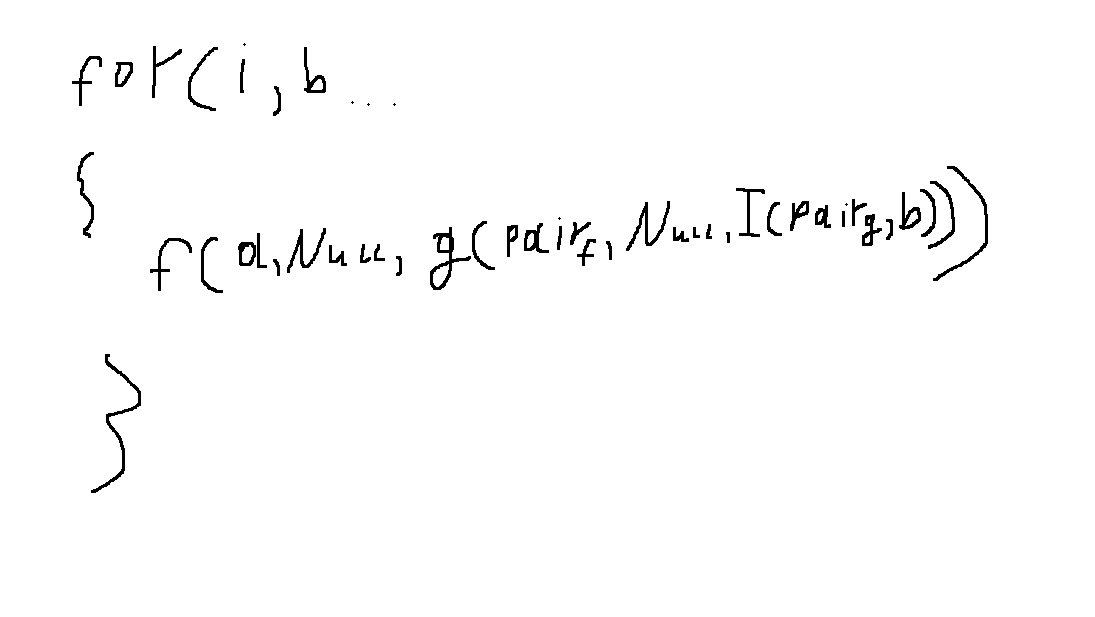 for(i, b ...
{
f(a, Null, g(pair_f, Null, I(pair_g, b)))
}